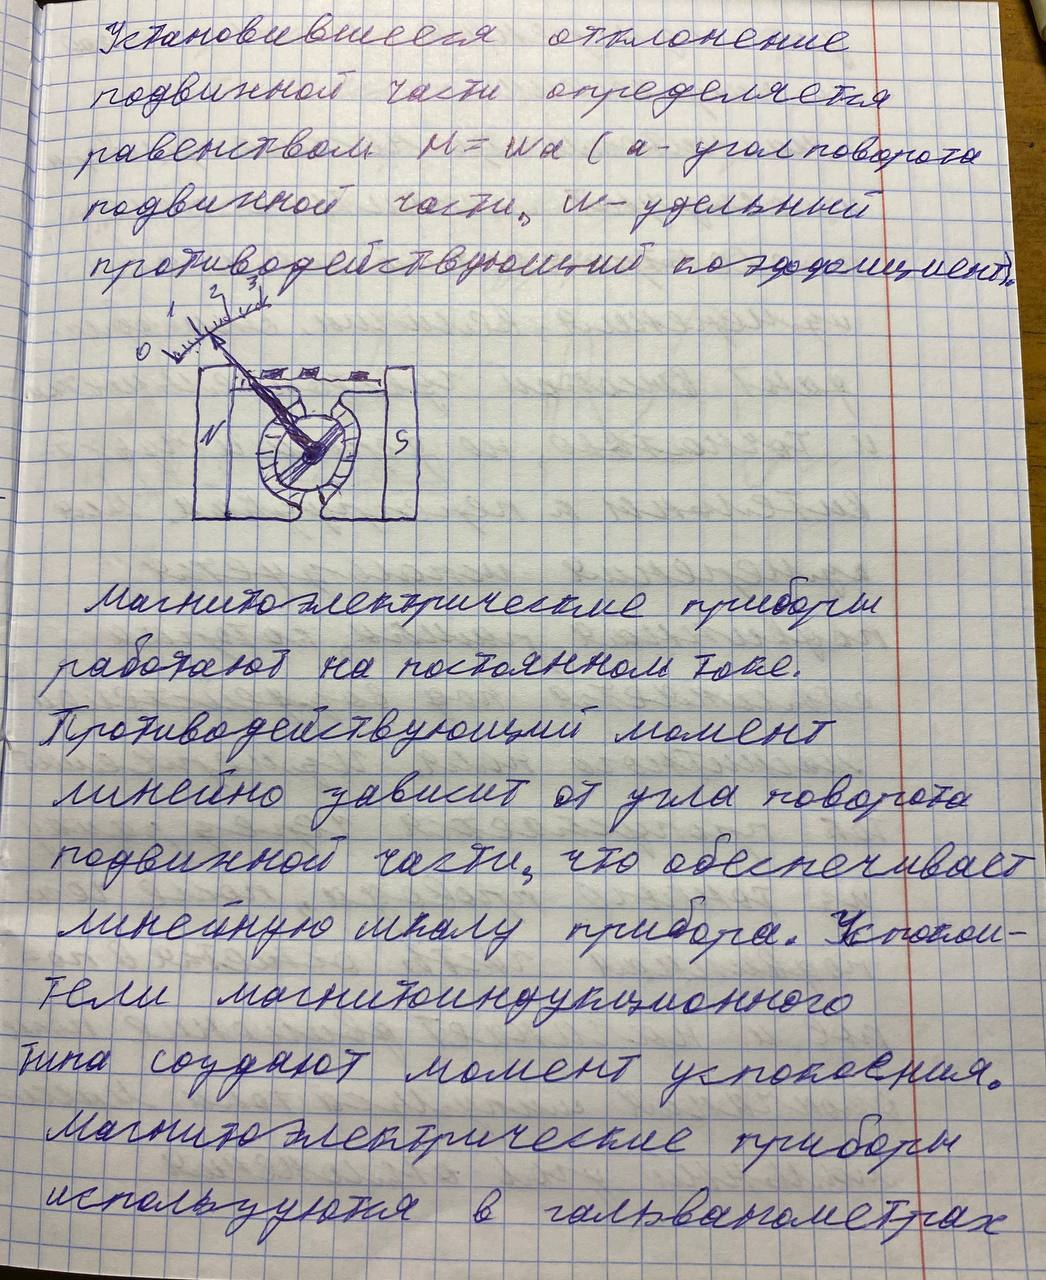 Установившееся отклонение
подвижной части определяется
равенством M = Wα (α - угол поворота
подвижной части, W - удельный
противодействующий коэффициент).
0 1 2 3
N S
Магнитоэлектрические приборы
работают на постоянном токе.
Противодействующий момент
линейно зависит от угла поворота
подвижной части, что обеспечивает
линейную шкалу прибора. Успокои-
тели магнитоиндукционного
типа создают момент успокоения.
Магнитоэлектрические приборы
используются в гальванометрах